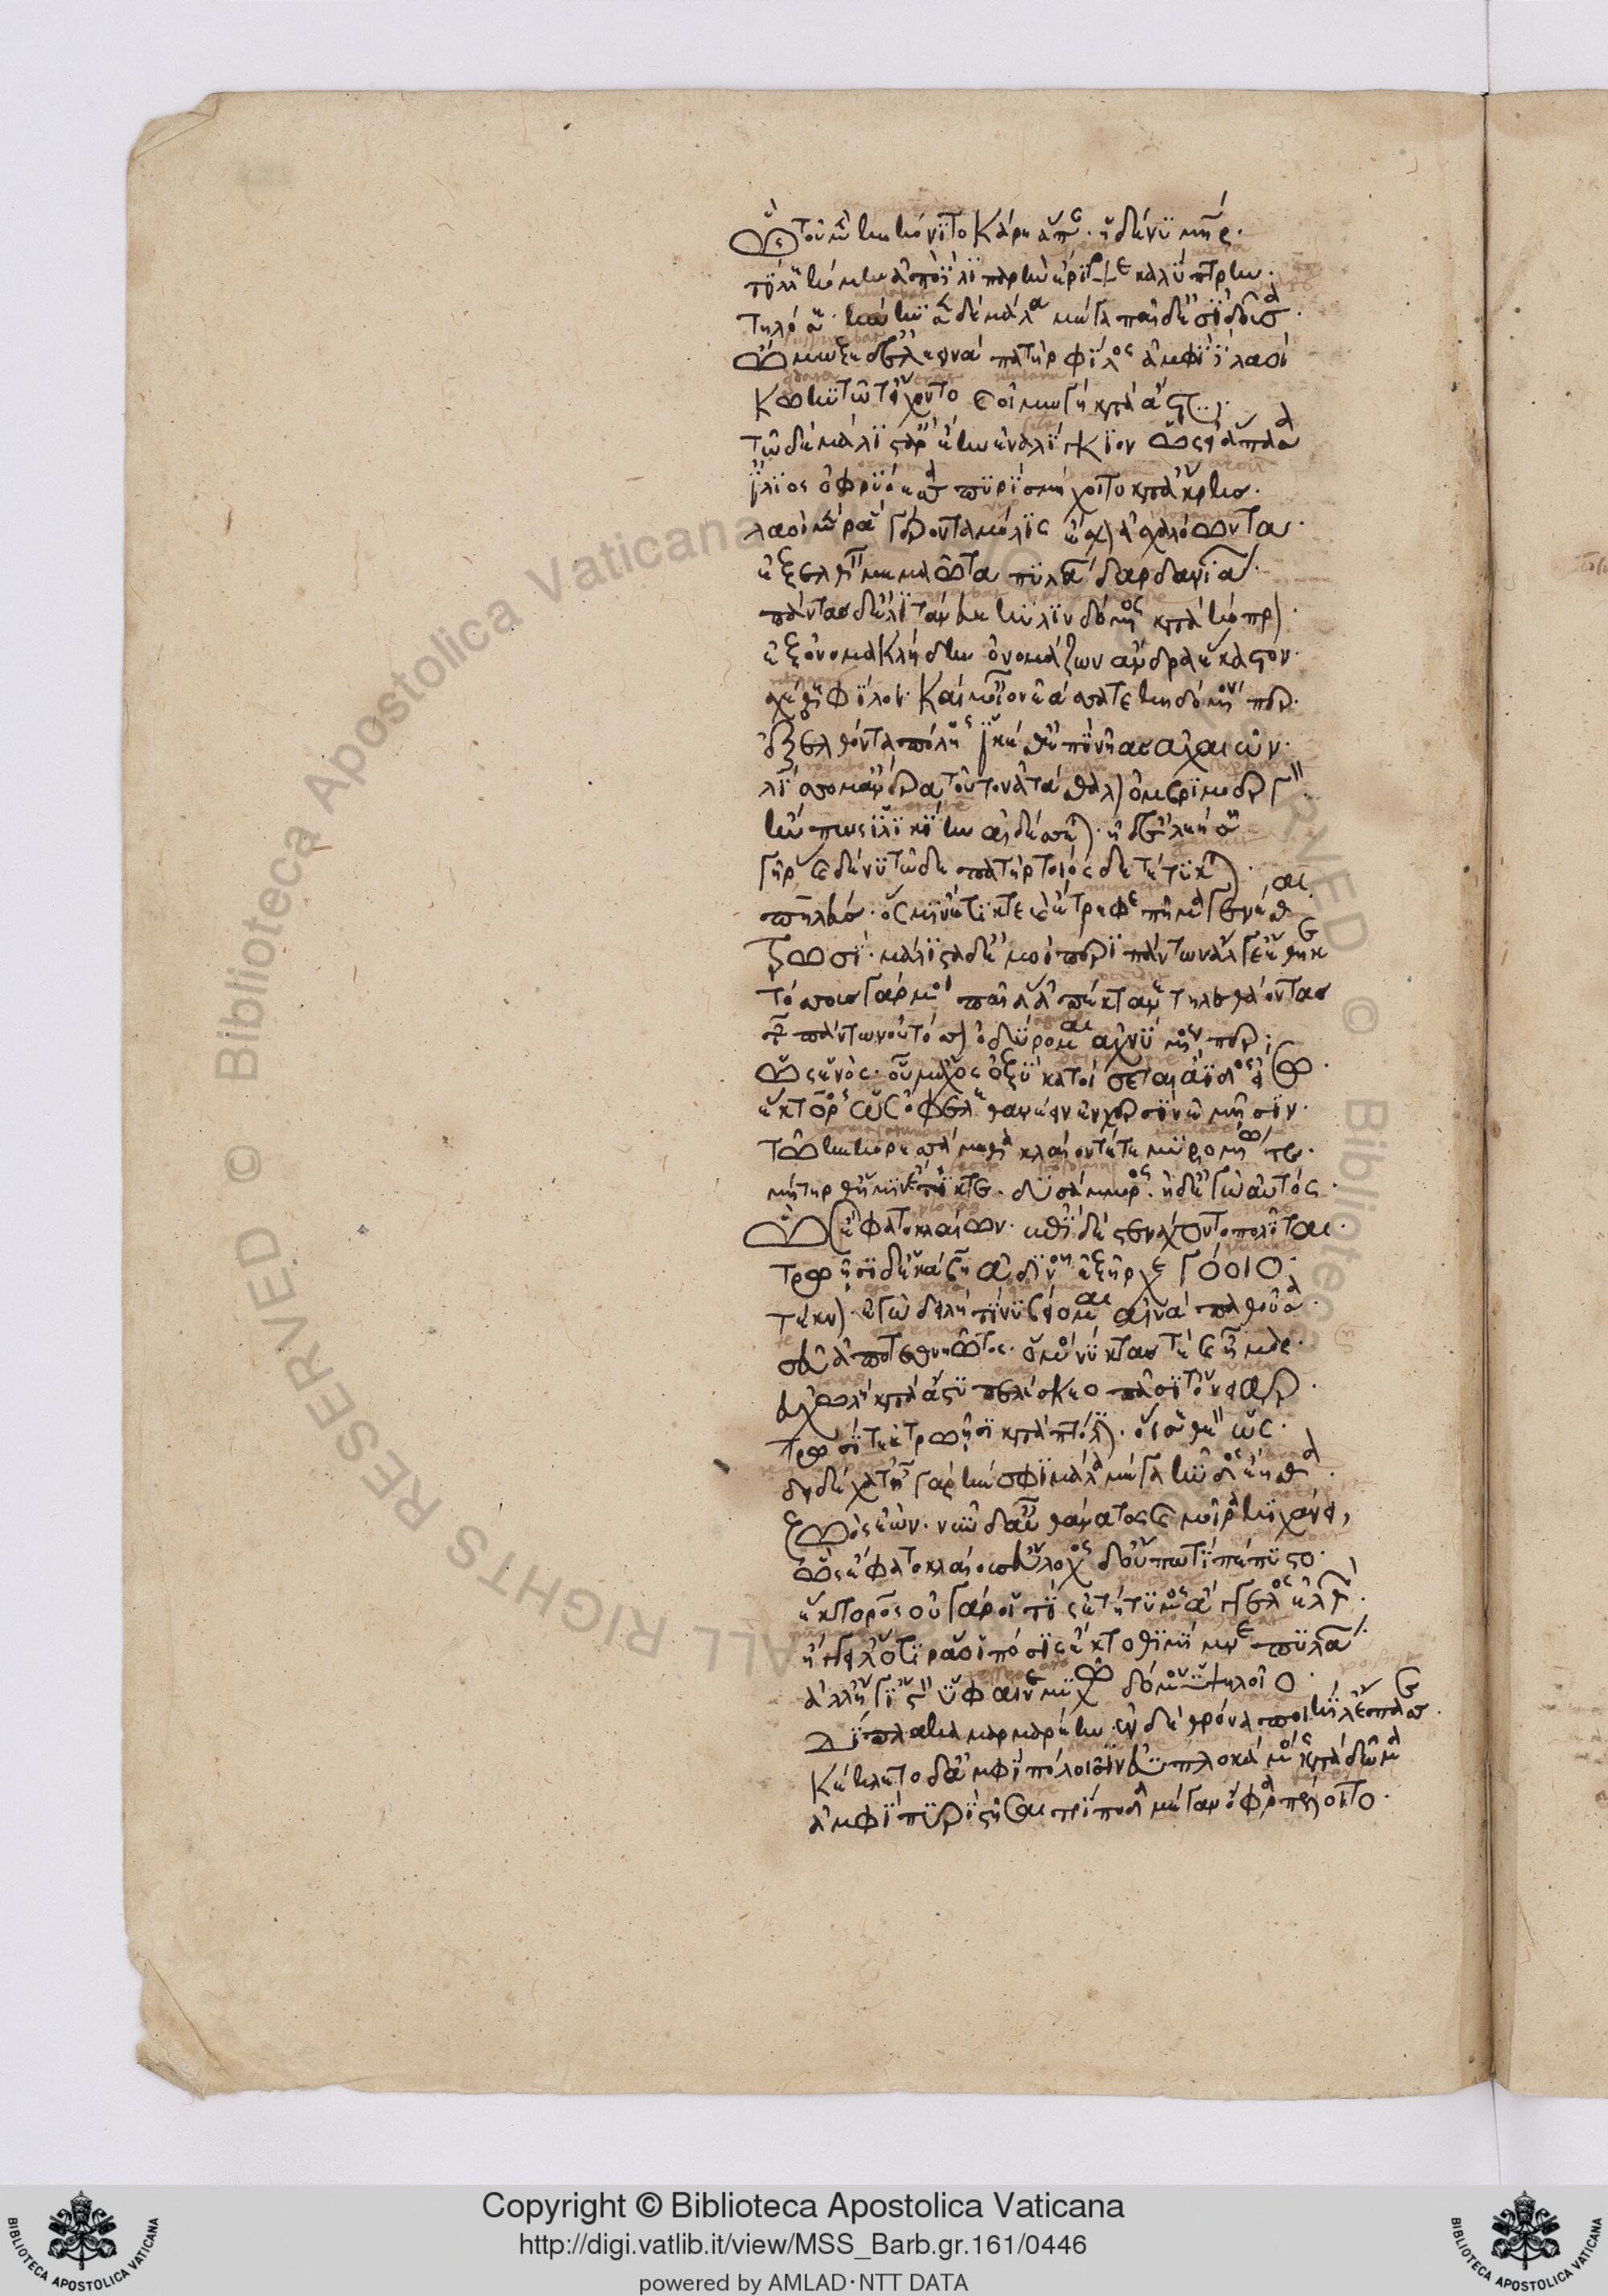 Ὣς τοῦ μὲν κεκόνιτο κάρη ἅπαν· ἡ δέ νυ μήτηρ·
τίλλε κόμην ἀπὸ δὲ λιπαρὴν ἔρριψε καλύπτρην·
τηλόσε· κώκυσε δὲ μάλα μέγα παῖδ' ἐσιδοῦσα·
ᾤμωξεν δ' ἐλεεινὰ πατὴρ φίλος ἀμφὶ δὲ λαοὶ
κωκυτῷ τ' εἴχοντο καὶ οἰμωγῇ κατὰ ἄστυ·
τῷ δὲ μάλιστ' ἄρ' ἔην ἐναλίγκιον ὡς εἰ ἅπασα
ἴλιος ὀφρυόεσσα πυρὶ σμήχοιτο κατ' ἄκρης·
λαοὶ μέν ῥα γέροντα μόλις ἔχον ἀσχαλόωντα·
ἐξελθεῖν μεμαῶτα πυλάων δαρδανιάων·
πάντας δ' ἐλιτάνευε κυλινδόμενος κατὰ κόπρον·
ἐξονομακλήδην ὀνομάζων ἄνδρα ἕκαστον·
σχέσθε φίλοι· καί μ' οἶον ἐάσατε κηδόμενόν περ·
ἐξελθόντα πόληος ἱκέσθ' ἐπὶ νῆας ἀχαιῶν·
λίσσομαι ἀνέρα τοῦτον ἀτάσθαλον ὀμβριμοεργόν·
ἤν πως ἡλικίην αἰδέσσεται· ἠδ' ἐλεήσῃ
γῆρας καὶ δέ νυ τῷδε πατὴρ τοιόσδε τέτυκται·
πηλεύς· ὅς μιν ἔτικτε καὶ ἔτρεφε πῆμα γενέσθαι
Τρωσί· μάλιστα δ' ἐμοὶ περὶ πάντων ἄλγε' ἔθηκε
τόσσους γάρ μοι παῖδας ἀπέκτανε τηλεθάοντας
τῶν πάντων οὐ τόσσον ὀδύρομαι ἀχνύμενός περ·
ὡς ἑνός· οὗ μ' ἄχος ὀξὺ κατοίσεται ἄϊδος εἴσω·
ἕκτορος ὡς ὄφελε θανέειν ἐν χερσὶν ἐμῇσιν·
τῶ κε κορεσσάμεθα κλαίοντέ τε μυρομένω τε·
μήτηρ θ' ἥ μιν ἔτικτε· δυσάμμορος· ἠδ' ἐγὼ αὐτός·
Ὣς ἔφατο κλαίων· ἐπὶ δὲ στενάχοντο πολῖται·
τρωῇσι δ' ἑκάβη ἁδινοῦ ἐξῆρχε γόοιο·
τέκνον ἐγὼ δειλή τί νυ βείομαι αἰνὰ παθοῦσα·
σεῦ ἀποτεθνηῶτος· ὅ μοι νύκτας τε καὶ ἦμαρ·
εὐχωλὴ κατὰ ἄστυ πελέσκεο πᾶσί τ' ὄνειαρ·
τρωσί τε καὶ τρωῇσι κατὰ πτόλιν· οἵ σε θεὸν ὥς·
δειδέχατ'· ἦ γὰρ καί σφι μάλα μέγα κῦδος ἔησθα·
ζωὸς ἐών· νῦν δ' αὖ θάνατος καὶ μοῖρα κιχάνει,
ὣς ἔφατο κλαίουσ' ἄλοχος δ' οὔπω τι πέπυστο·
ἕκτορος οὐ γάρ οἵ τις ἐτήτυμος ἄγγελος ἐλθών·
ἤγγειλ' ὅττί ῥά οἱ πόσις ἔκτοθι μίμνε πυλάων·
ἀλλ' ἥγ' ἱστὸν ὕφαινε μυχῷ δόμου ὑψηλοῖο·
δίπλακα μαρμαρέην· ἐν δὲ θρόνα ποικίλ' ἔπασσεν·
κέκλετο δ' ἀμφιπόλοισιν ἐϋπλοκάμοις κατὰ δῶμα
ἀμφὶ πυρὶ στῆσαι τρίποδα μέγαν ὄφρα πέλοιτο·
Copyright © Biblioteca Apostolica Vaticana
http://digi.vatlib.it/view/MSS_Barb.gr.161/0446
powered by AMLAD·NTT DATA